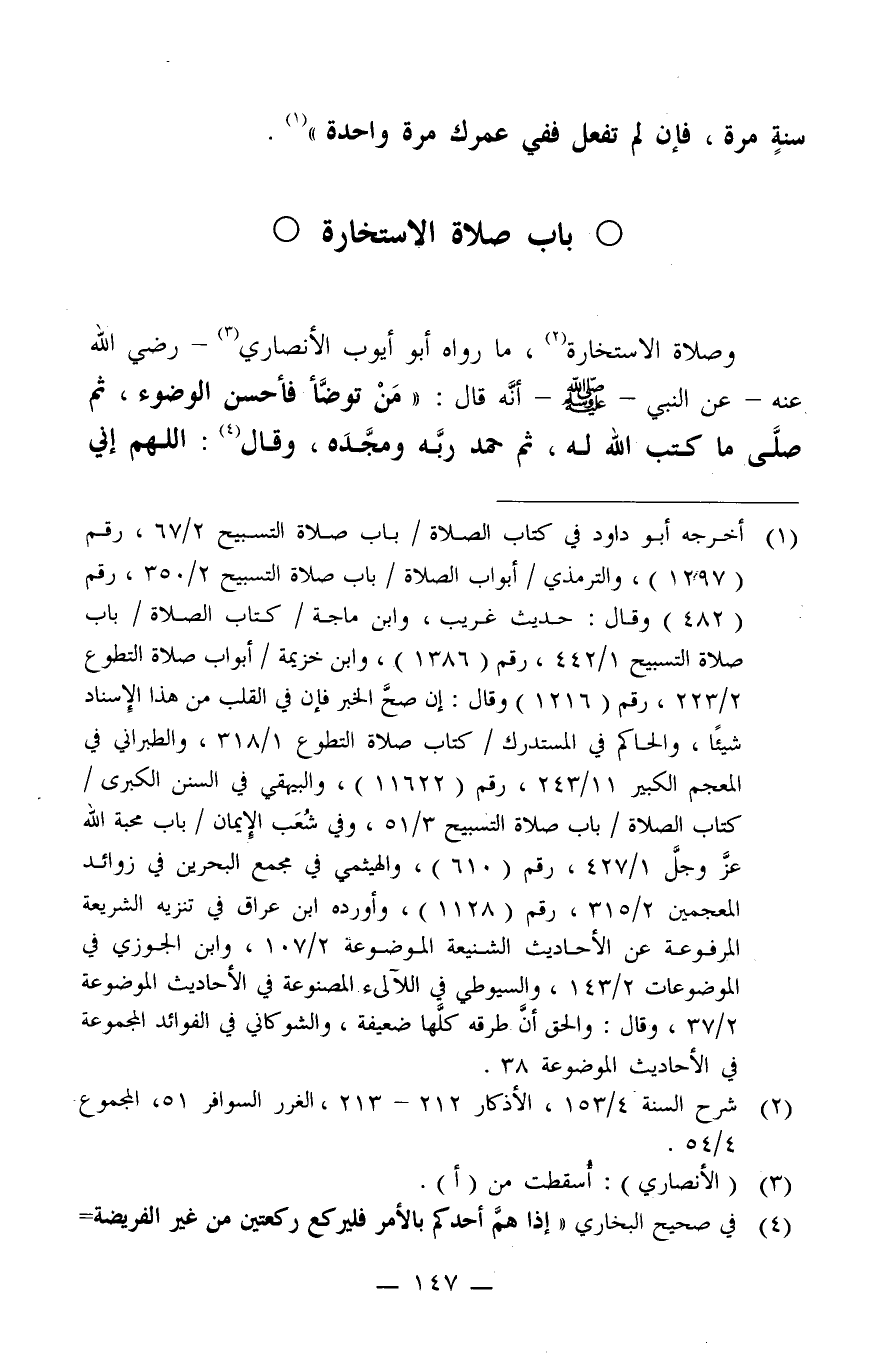 سنةٍ مرة ، فإن لم تفعل ففي عمرك مرة واحدة »(١) .
○ باب صلاة الاستخارة ○
وصلاة الاستخارة(٢) ، ما رواه أبو أيوب الأنصاري(٣) – رضي الله
عنه – عن النبي – ﷺ – أنَّه قال : « مَنْ توضَّأ فأحسن الوضوء ، ثم
صلَّى ما كتب الله له ، ثم حمد ربَّه ومجَّدَه ، وقال(٤) : اللهم إني
(١) أخرجه أبو داود في كتاب الصلاة / باب صلاة التسبيح ٦٧/٢ ، رقم
( ١٢٩٧ ) ، والترمذي / أبواب الصلاة / باب صلاة التسبيح ٣٥٠/٢ ، رقم
( ٤٨٢ ) وقال : حديث غريب ، وابن ماجة / كتاب الصلاة / باب
صلاة التسبيح ٤٤٢/١ ، رقم ( ١٣٨٦ ) ، وابن خزيمة / أبواب صلاة التطوع
٢٢٣/٢ ، رقم ( ١٢١٦ ) وقال : إن صحَّ الخبر فإن في القلب من هذا الإسناد
شيئًا ، والحاكم في المستدرك / كتاب صلاة التطوع ٣١٨/١ ، والطبراني في
المعجم الكبير ٢٤٣/١١ ، رقم ( ١١٦٢٢ ) ، والبيهقي في السنن الكبرى /
كتاب الصلاة / باب صلاة التسبيح ٥١/٣ ، وفي شُعَب الإيمان / باب محبة الله
عزَّ وجلَّ ٤٢٧/١ ، رقم ( ٦١٠ ) ، والهيثمي في مجمع البحرين في زوائد
المعجمين ٣١٥/٢ ، رقم ( ١١٢٨ ) ، وأورده ابن عراق في تنزيه الشريعة
المرفوعة عن الأحاديث الشنيعة الموضوعة ١٠٧/٢ ، وابن الجوزي في
الموضوعات ١٤٣/٢ ، والسيوطي في اللآلىء المصنوعة في الأحاديث الموضوعة
٣٧/٢ ، وقال : والحق أنَّ طرقه كلَّها ضعيفة ، والشوكاني في الفوائد المجموعة
في الأحاديث الموضوعة ٣٨ .
(٢) شرح السنة ١٥٣/٤ ، الأذكار ٢١٢ – ٢١٣ ، الغرر السوافر ٥١، المجموع
٥٤/٤ .
(٣) ( الأنصاري ) : أُسقطت من ( أ ) .
(٤) في صحيح البخاري « إذا همَّ أحدكم بالأمر فليركع ركعتين من غير الفريضة=
— ١٤٧ —